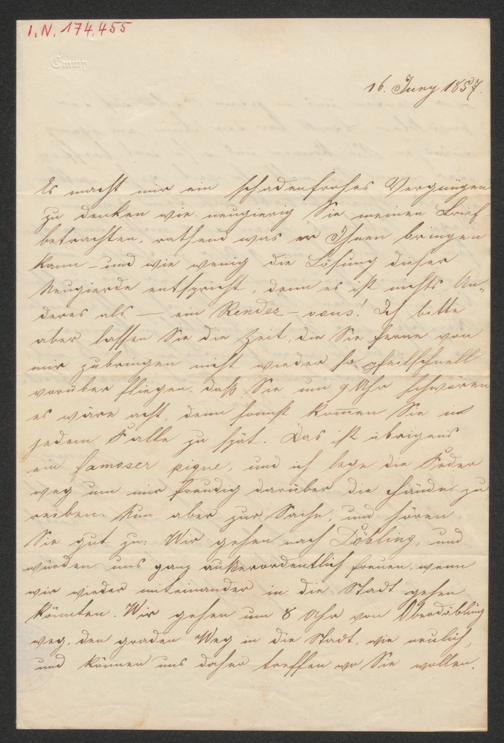 I.N. 174.455
16. Juny 1857.
Es macht mir ein schadenfrohes Vergnügen
zu denken wie neugierig Sie meinen Brief
betrachten, rathend was er Ihnen bringen
kann – und wie wenig die Lösung dieser
Neugierde entspricht, denn es ist nichts An-
deres als — ein Rendez-vous! Ich bitte
aber lassen Sie die Zeit, die Sie ferne von
mir zubringen nicht wieder so pfeilschnell
vorüber fliegen, daß Sie um 9 Uhr schwören
es wäre acht, denn sonst kommen Sie in
jedem Falle zu spät. Das ist übrigens
ein famoser pique, und ich lege die Feder
weg um mir freudig darüber die Hände zu
reiben. Nun aber zur Sache, und hören
Sie gut zu: Wir gehen nach Döbling, und
würden uns ganz außerordentlich freuen, wenn
wir wieder miteinander in die Stadt gehen
könnten. Wir gehen um 8 Uhr von Oberdöbling
weg, den graden Weg in die Stadt, wie neulich,
und können uns daher treffen wo Sie wollen.